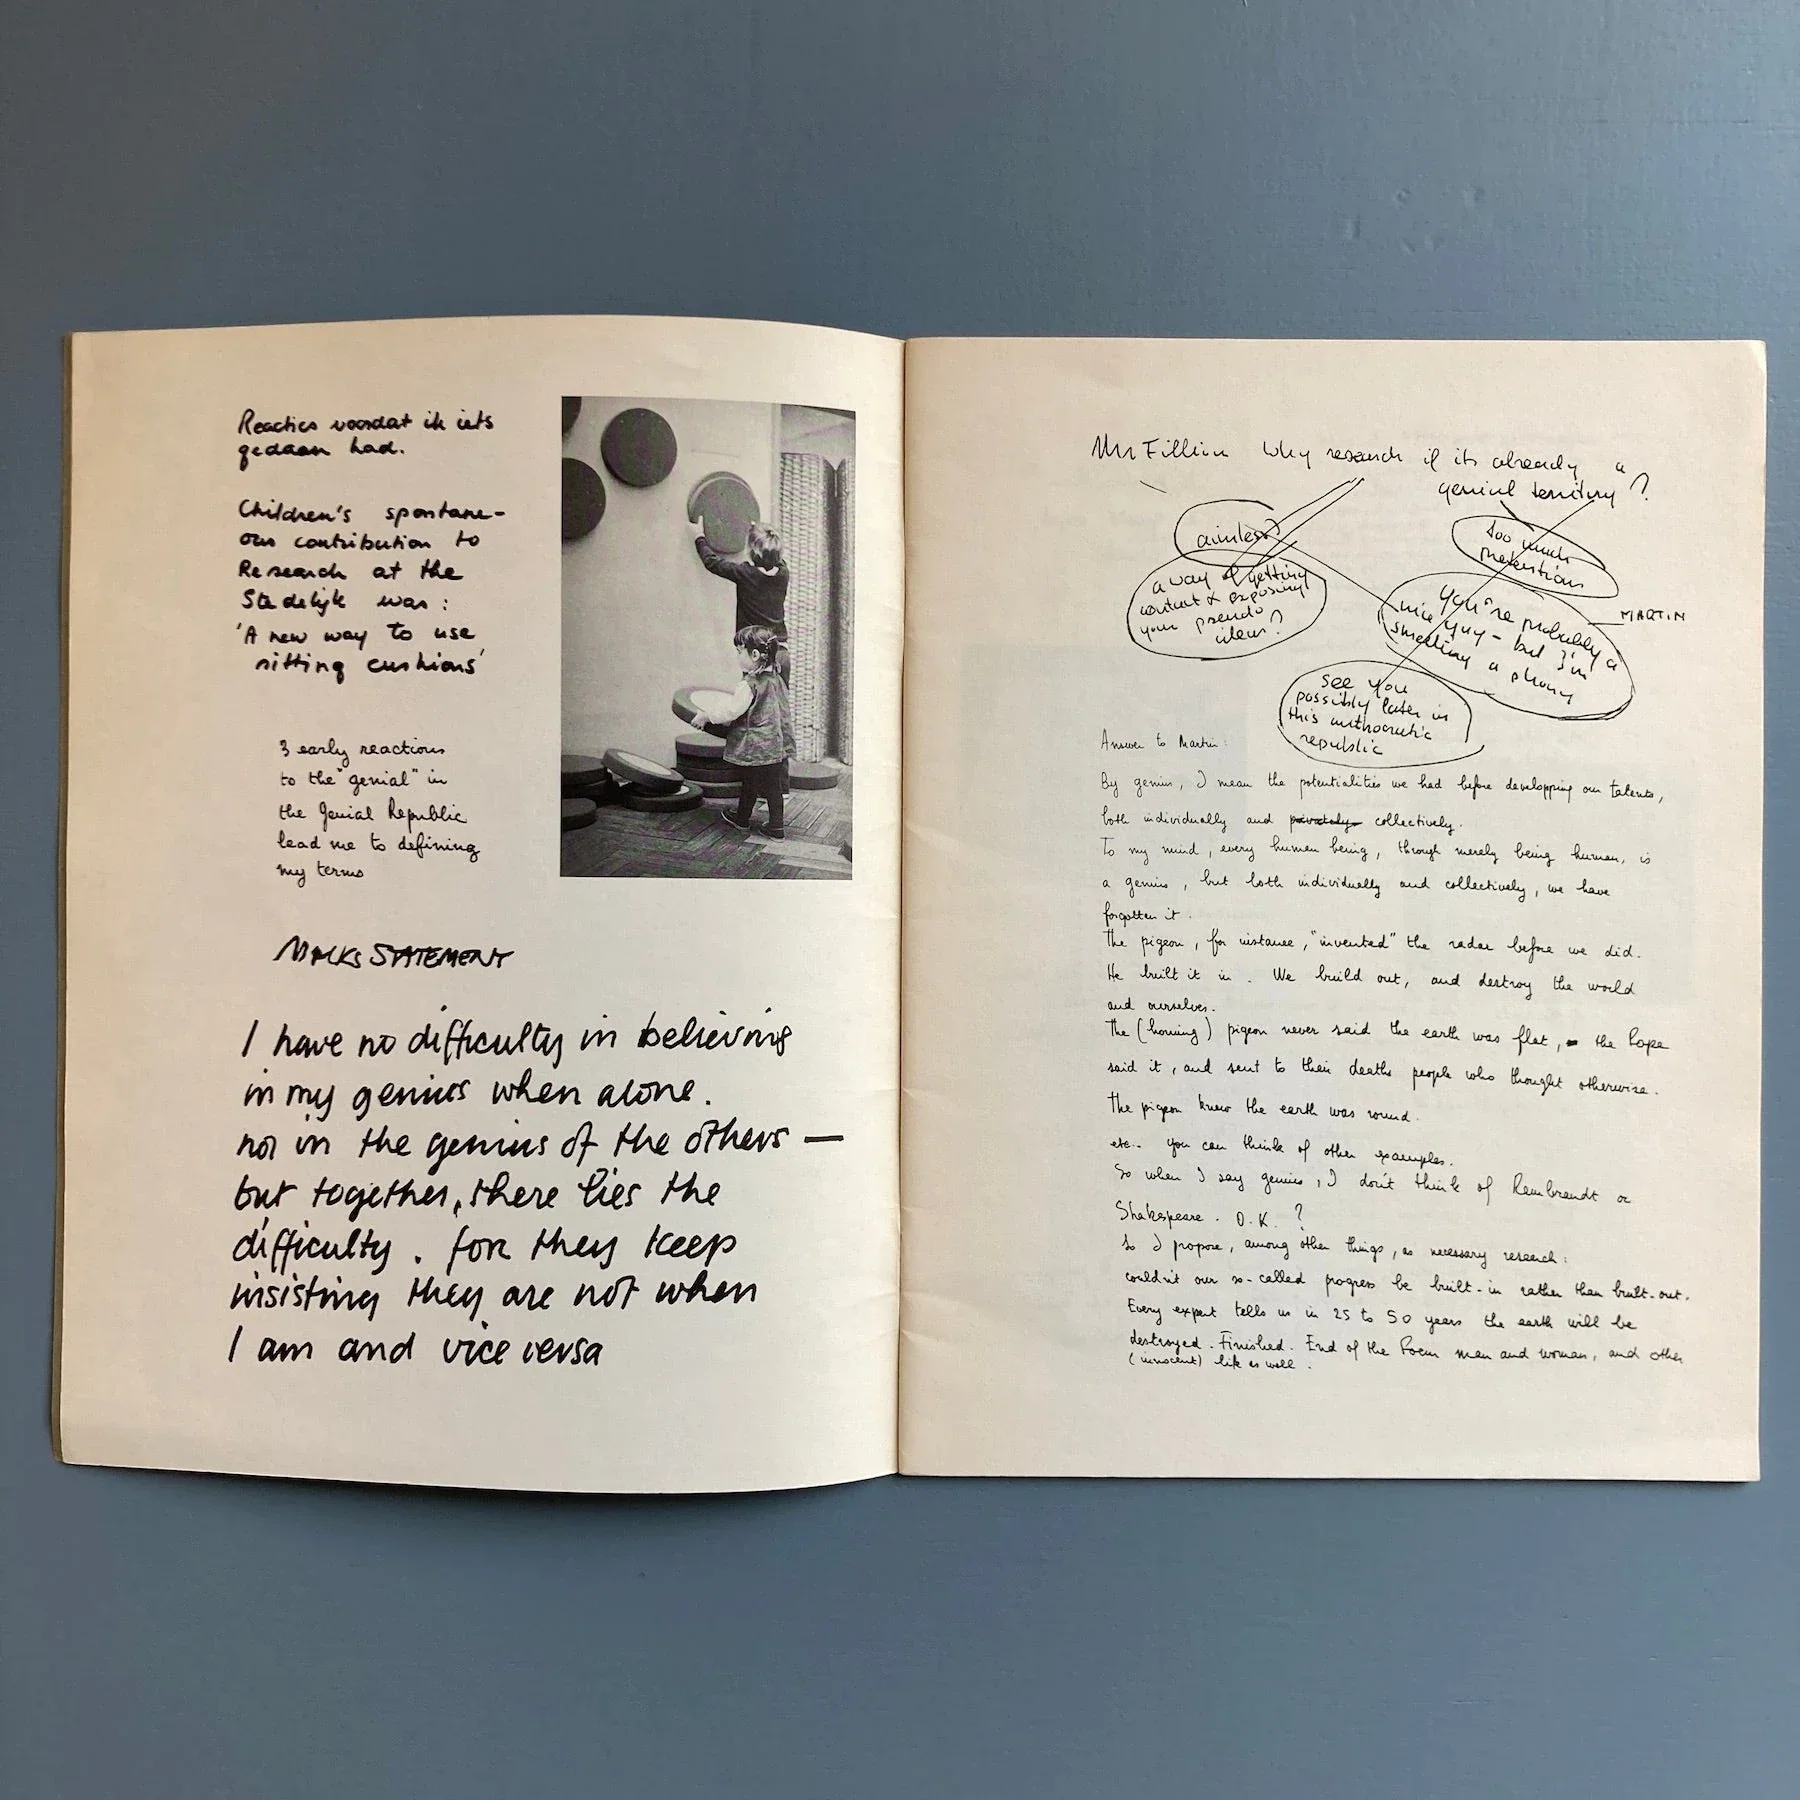 Reacties voordat ik iets
gedaan had.
Children's spontane-
ous contribution to
Research at the
Stedelijk was:
'A new way to use
sitting cushions'
3 early reactions
to the "genial" in
the Genial Republic
lead me to defining
my terms
STATEMENT
I have no difficulty in believing
in my genius when alone.
nor in the genius of the others —
but together, there lies the
difficulty. for they keep
insisting they are not when
I am and vice versa
Mr Filliou Why research if its already a
genial territory?
aimless?
too much
pretentions
a way of getting
contact & exposing
your pseudo
ideas?
you're probably a
nice guy - but I'm
smelling a phony
MARTIN
see you
possibly later in
this authocratic
republic
Answer to Martin:
By genius, I mean the potentialities we had before developping our talents,
both individually and privately collectively.
To my mind, every human being, through merely being human, is
a genius, but both individually and collectively, we have
forgotten it.
The pigeon, for instance, "invented" the radar before we did.
He built it in. We build out, and destroy the world
and ourselves.
The (homing) pigeon never said the earth was flat, the Pope
said it, and sent to their deaths people who thought otherwise.
The pigeon knew the earth was round.
etc.. You can think of other examples.
So when I say genius, I don't think of Rembrandt or
Shakespeare. O.K.?
So I propose, among other things, as necessary research:
couldn't our so-called progress be built-in rather than built-out.
Every expert tells us in 25 to 50 years the earth will be
destroyed. Finished. End of the Poem man and woman, and other
(innocent) life as well.